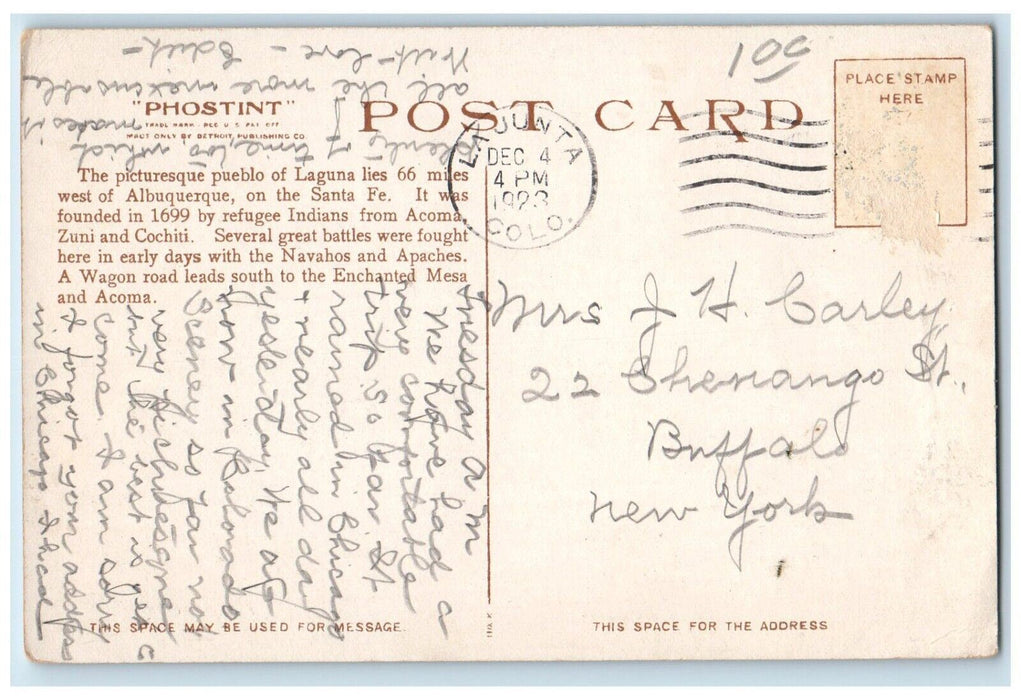 10¢
"PHOSTINT"
TRADE MARK REG U S PAT OFF
MADE ONLY BY DETROIT PUBLISHING CO.
POST CARD
PLACE STAMP
HERE
LA JUNTA
DEC 4
4 PM
1923
COLO.
The picturesque pueblo of Laguna lies 66 miles
west of Albuquerque, on the Santa Fe. It was
founded in 1699 by refugee Indians from Acoma,
Zuni and Cochiti. Several great battles were fought
here in early days with the Navahos and Apaches.
A Wagon road leads south to the Enchanted Mesa
and Acoma.
Tuesday A M
We have had a
very comfortable
trip so far. It
rained in Chicago
& nearly all day
yesterday. We are
now in Colorado
Scenery so far not
very picturesque
but the best is yet to
come. I am sorry
I forgot your address
in Chicago & had
plenty of time, too, which
makes it
all the more inexcusable
With love -
Edith -
Mrs J H Carley
22 Shenango St.,
Buffalo
New York
THIS SPACE MAY BE USED FOR MESSAGE.
THIS SPACE FOR THE ADDRESS